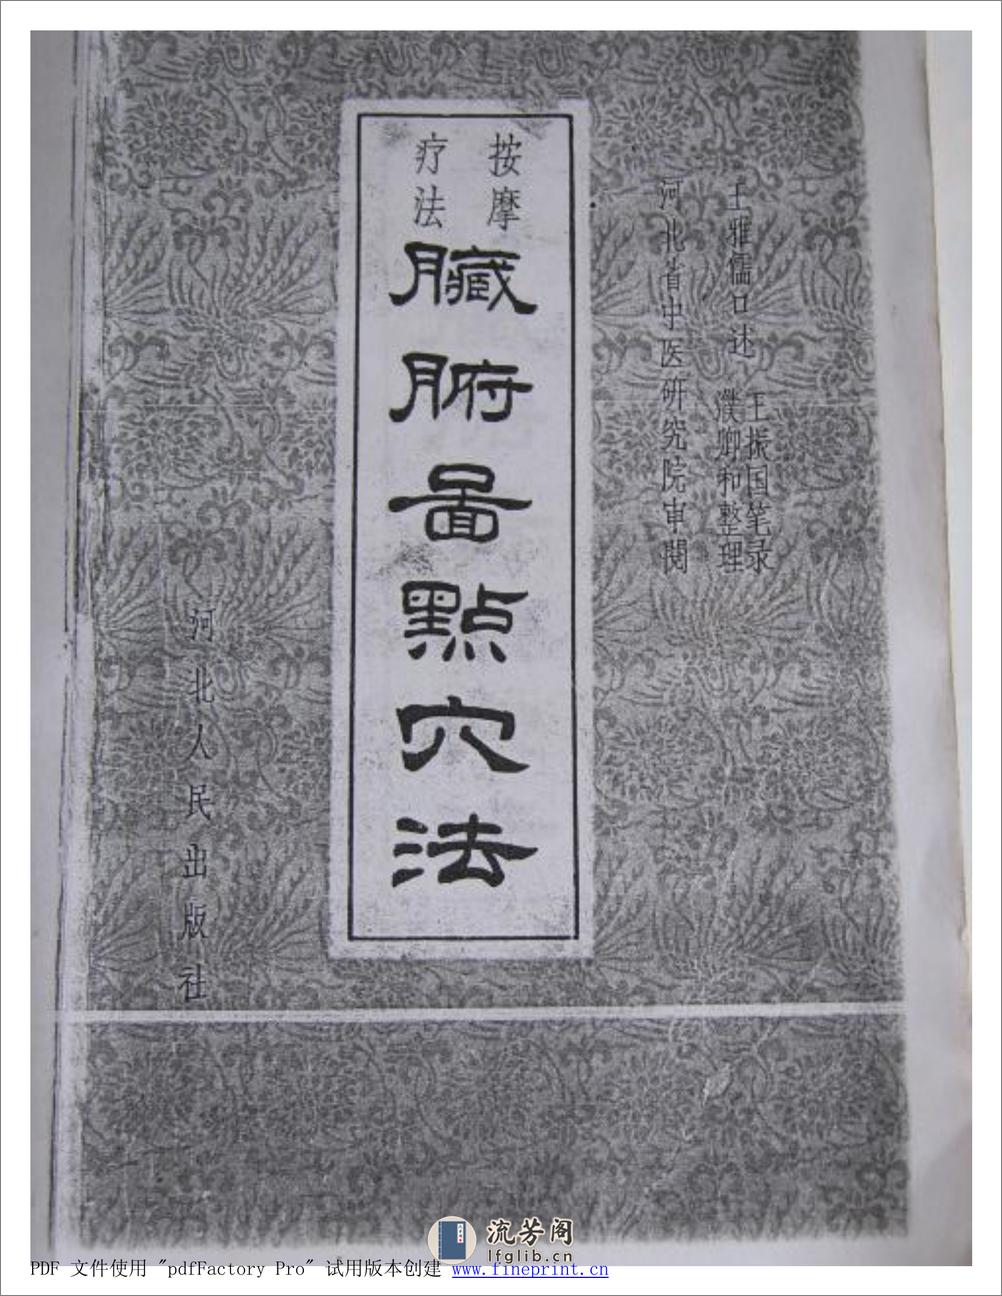 王雅儒口述 王振国笔录
濮卿和整理
河北省中医研究院审阅
按摩
疗法
臟腑啚點穴法
河北人民出版社
流芳阁
lfglib.cn
PDF 文件使用 "pdfFactory Pro" 试用版本创建 www.fineprint.cn